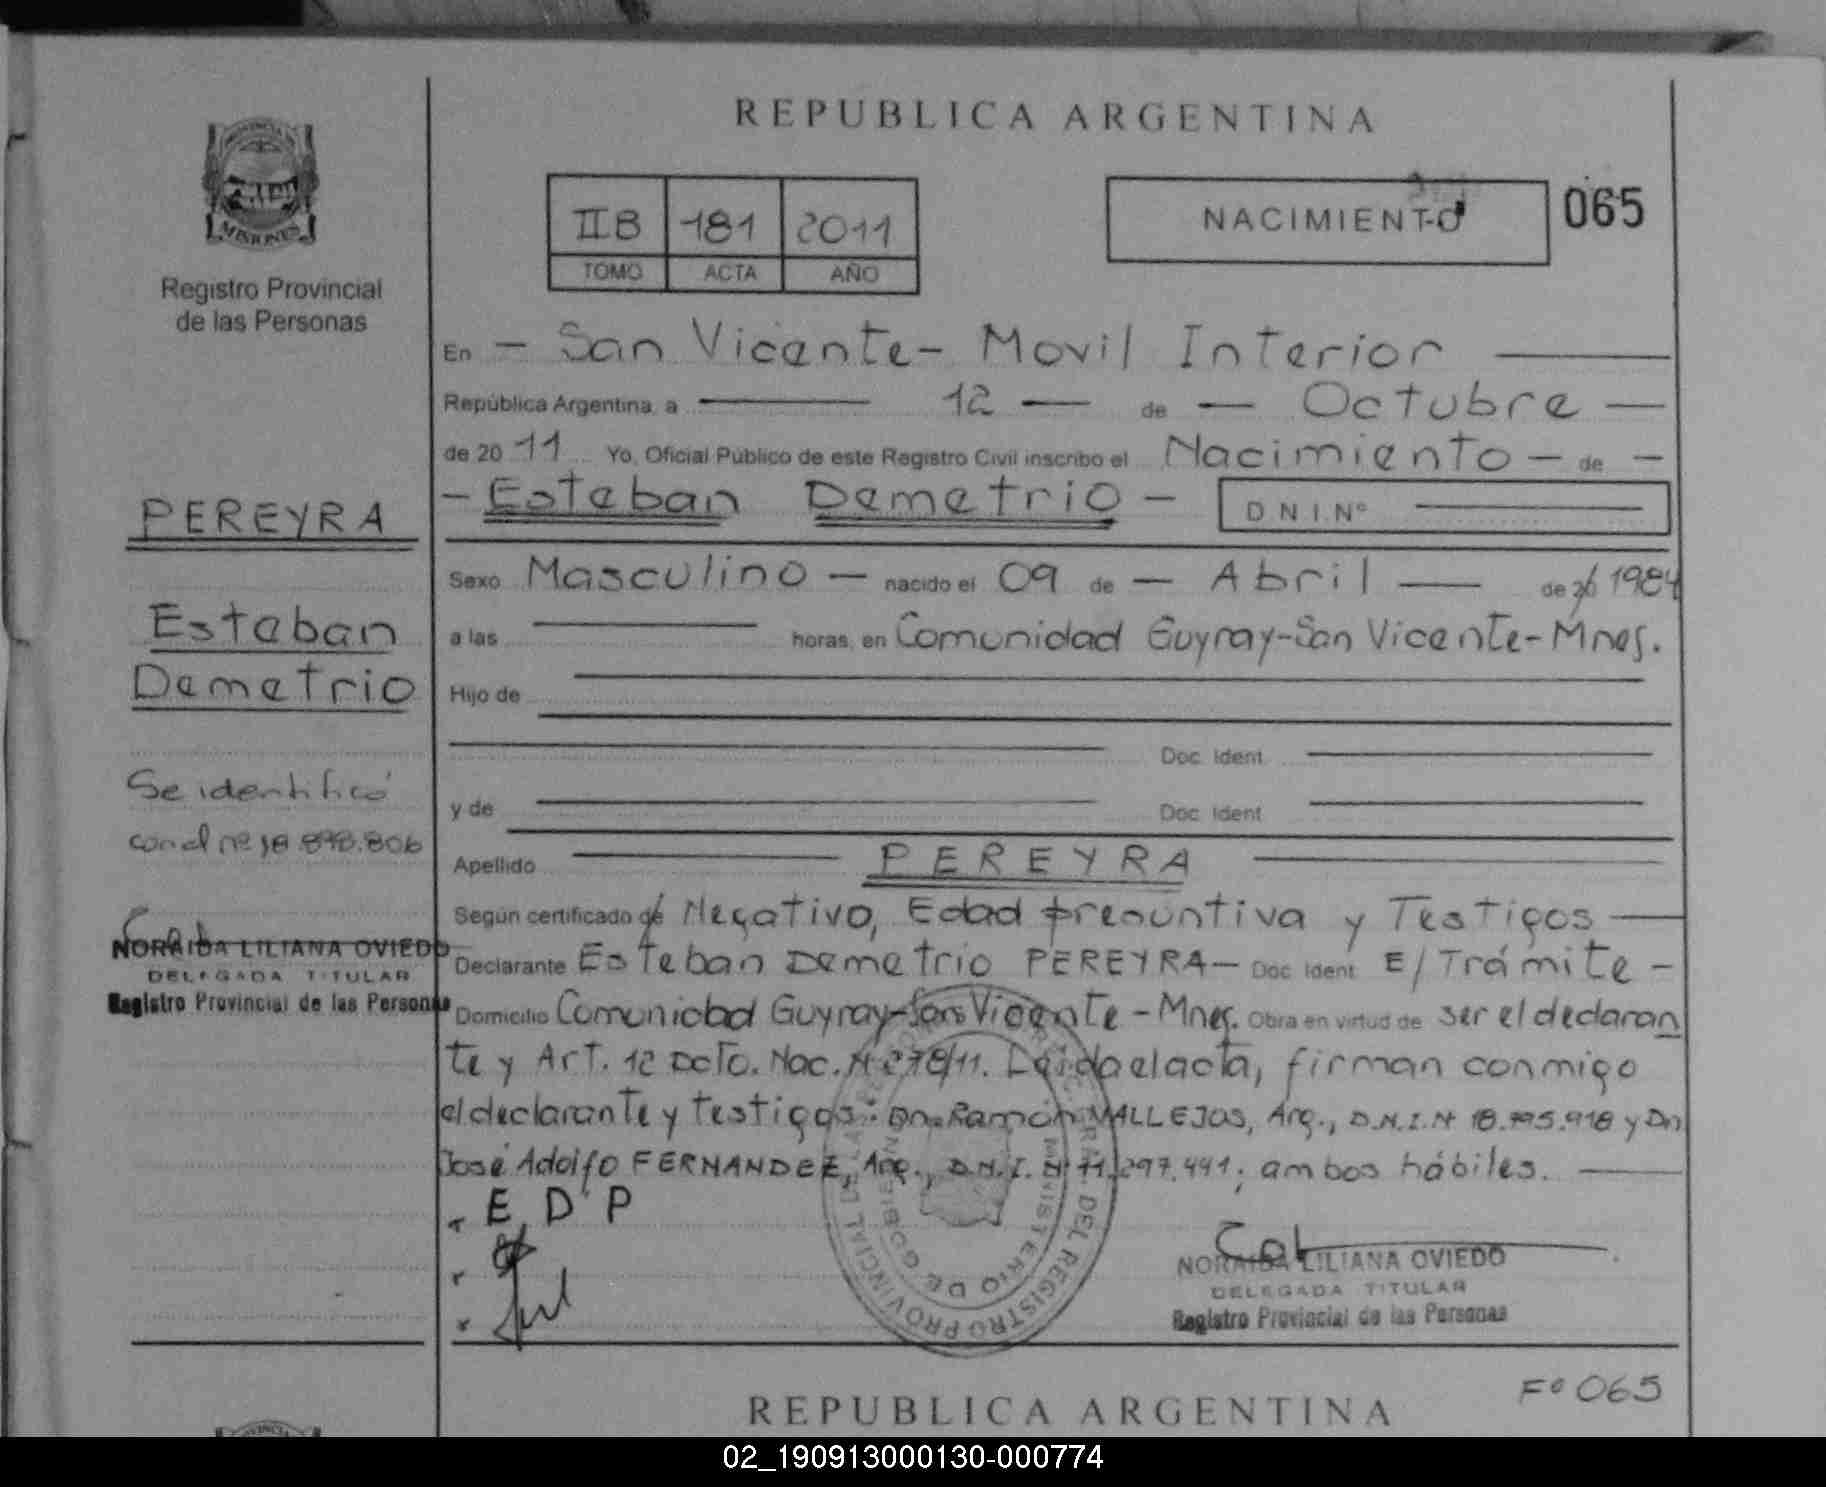 REPUBLICA ARGENTINA
PROVINCIA DE
MISIONES
Registro Provincial
de las Personas
II B 181 2011
TOMO ACTA AÑO
NACIMIENTO 065
En - San Vicente - Movil Interior
República Argentina, a 12 de Octubre
de 2011 Yo, Oficial Público de este Registro Civil inscribo el Nacimiento - de -
- Esteban Demetrio - D N I. Nº
Sexo Masculino - nacido el 09 de - Abril de 20 1984
a las horas, en Comunidad Guyray-San Vicente-Mnes.
Hijo de
Doc. Ident.
y de Doc. Ident.
Apellido PEREYRA
Según certificado de Negativo, Edad presuntiva y Testigos
Declarante Esteban Demetrio PEREYRA- Doc. Ident. E/Trámite -
Domicilio Comunidad Guyray-San Vicente - Mnes. Obra en virtud de ser el declaran
te y Art. 12 Dcto. Nac. N 278/11. Leida el acta, firman conmigo
el declarante y testigos: Dn. Ramon VALLEJOS, Arg., D.N.I. N 18. y Dn
José Adolfo FERNANDEZ, Arg., D.N.I. N 11.297.441; ambos hábiles.
E D P
NORAIDA LILIANA OVIEDO
DELEGADA TITULAR
Registro Provincial de las Personas
PEREYRA
Esteban
Demetrio
Se identificó
con el nº 18.898.806
NORAIDA LILIANA OVIEDO
DELEGADA TITULAR
Registro Provincial de las Personas
DEL REGISTRO PROVINCIAL DE LAS
MINISTERIO DE GOBIERNO
Fº 065
REPUBLICA ARGENTINA
02_190913000130-000774